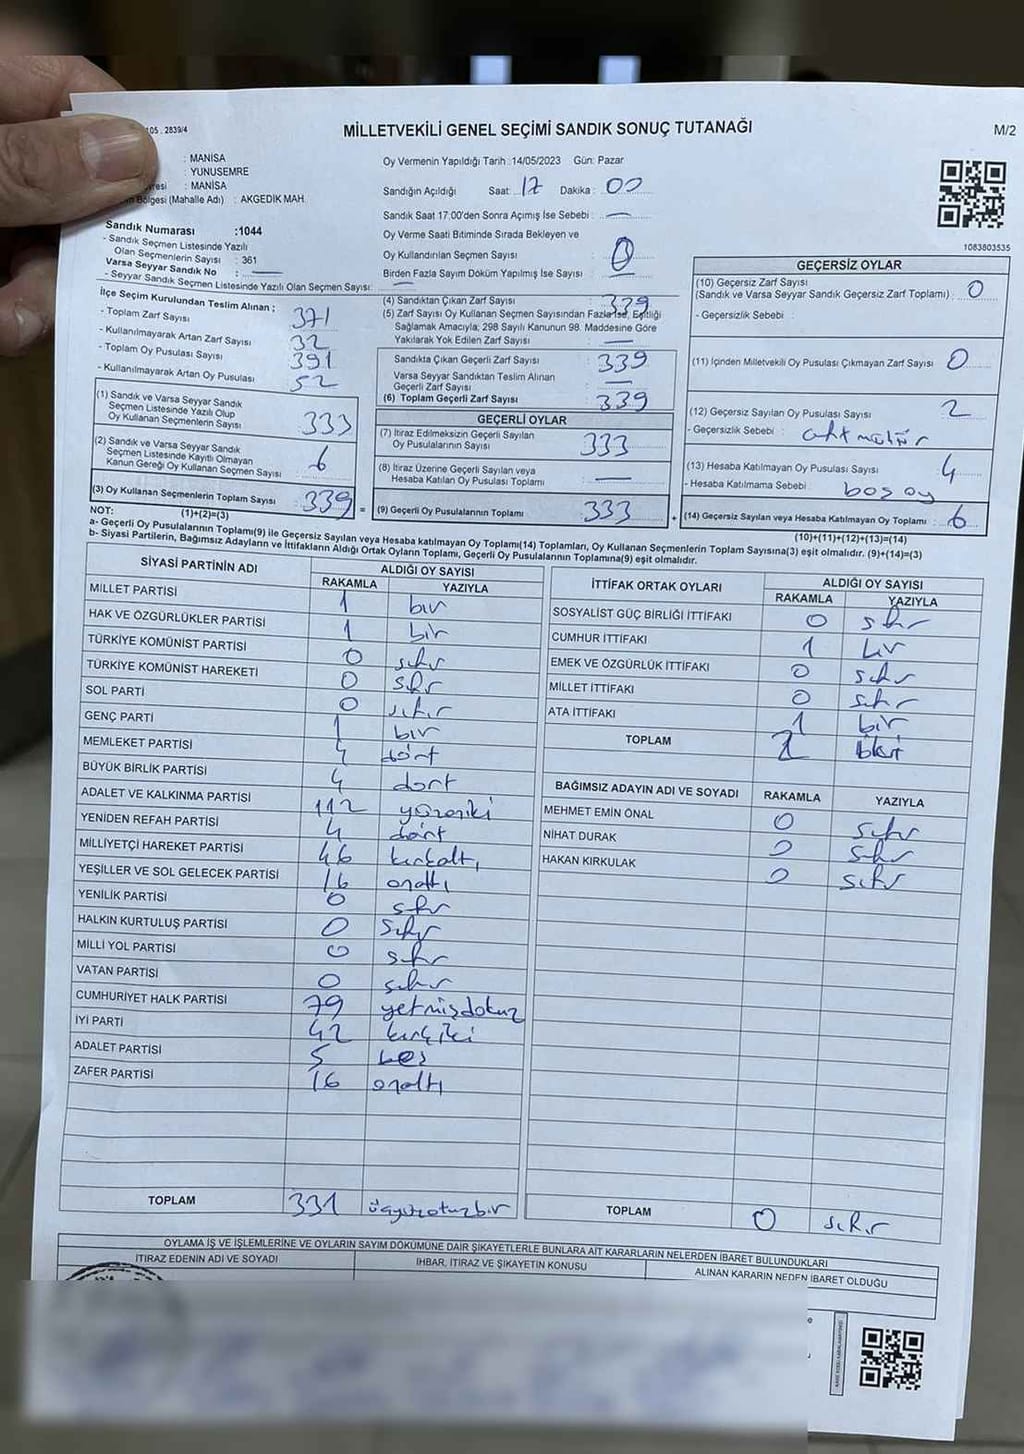 105 . 2839/4
MİLLETVEKİLİ GENEL SEÇİMİ SANDIK SONUÇ TUTANAĞI
M/2
: MANİSA
: YUNUSEMRE
: MANİSA
Bölgesi (Mahalle Adı) : AKGEDİK MAH.
Sandık Numarası :1044
- Sandık Seçmen Listesinde Yazılı
Olan Seçmenlerin Sayısı : 361
Varsa Seyyar Sandık No : —
- Seyyar Sandık Seçmen Listesinde Yazılı Olan Seçmen Sayısı: —
Oy Vermenin Yapıldığı Tarih :14/05/2023 Gün: Pazar
Sandığın Açıldığı Saat: 17 Dakika : 00
Sandık Saat 17:00'den Sonra Açımış İse Sebebi : —
Oy Verme Saati Bitiminde Sırada Bekleyen ve
Oy Kullandırılan Seçmen Sayısı : 0
Birden Fazla Sayım Döküm Yapılmış İse Sayısı : —
1083803535
İlçe Seçim Kurulundan Teslim Alınan ;
- Toplam Zarf Sayısı 371
- Kullanılmayarak Artan Zarf Sayısı 32
- Toplam Oy Pusulası Sayısı 391
- Kullanılmayarak Artan Oy Pusulası 52
(1) Sandık ve Varsa Seyyar Sandık
Seçmen Listesinde Yazılı Olup
Oy Kullanan Seçmenlerin Sayısı 333
(2) Sandık ve Varsa Seyyar Sandık
Seçmen Listesinde Kayıtlı Olmayan
Kanun Gereği Oy Kullanan Seçmen Sayısı 6
(3) Oy Kullanan Seçmenlerin Toplam Sayısı 339 =
(1)+(2)=(3)
(4) Sandıktan Çıkan Zarf Sayısı 339
(5) Zarf Sayısı Oy Kullanan Seçmen Sayısından Fazla İse, Eşitliği
Sağlamak Amacıyla; 298 Sayılı Kanunun 98. Maddesine Göre
Yakılarak Yok Edilen Zarf Sayısı : —
Sandıkta Çıkan Geçerli Zarf Sayısı : 339
Varsa Seyyar Sandıktan Teslim Alınan
Geçerli Zarf Sayısı : —
(6) Toplam Geçerli Zarf Sayısı : 339
GEÇERLİ OYLAR
(7) İtiraz Edilmeksizin Geçerli Sayılan
Oy Pusulalarının Sayısı : 333
(8) İtiraz Üzerine Geçerli Sayılan veya
Hesaba Katılan Oy Pusulası Toplamı : —
(9) Geçerli Oy Pusulalarının Toplamı : 333 +
GEÇERSİZ OYLAR
(10) Geçersiz Zarf Sayısı
(Sandık ve Varsa Seyyar Sandık Geçersiz Zarf Toplamı) : 0
- Geçersizlik Sebebi :
(11) İçinden Milletvekili Oy Pusulası Çıkmayan Zarf Sayısı 0
(12) Geçersiz Sayılan Oy Pusulası Sayısı 2
- Geçersizlik Sebebi :
(13) Hesaba Katılmayan Oy Pusulası Sayısı 4
- Hesaba Katılmama Sebebi : boş oy
(14) Geçersiz Sayılan veya Hesaba Katılmayan Oy Toplamı : 6
(10)+(11)+(12)+(13)=(14)
NOT:
a- Geçerli Oy Pusulalarının Toplamı(9) ile Geçersiz Sayılan veya Hesaba katılmayan Oy Toplamı(14) Toplamları, Oy Kullanan Seçmenlerin Toplam Sayısına(3) eşit olmalıdır. (9)+(14)=(3)
b- Siyasi Partilerin, Bağımsız Adayların ve İttifakların Aldığı Ortak Oyların Toplamı, Geçerli Oy Pusulalarının Toplamına(9) eşit olmalıdır.
SİYASİ PARTİNİN ADI ALDIĞI OY SAYISI
RAKAMLA YAZIYLA
MİLLET PARTİSİ 1 bir
HAK VE ÖZGÜRLÜKLER PARTİSİ 1 bir
TÜRKİYE KOMÜNİST PARTİSİ 0 sıfır
TÜRKİYE KOMÜNİST HAREKETİ 0 sıfır
SOL PARTİ 0 sıfır
GENÇ PARTİ 1 bir
MEMLEKET PARTİSİ 4 dört
BÜYÜK BİRLİK PARTİSİ 4 dört
ADALET VE KALKINMA PARTİSİ 112 yüzoniki
YENİDEN REFAH PARTİSİ 4 dört
MİLLİYETÇİ HAREKET PARTİSİ 46 kırkaltı
YEŞİLLER VE SOL GELECEK PARTİSİ 16 onaltı
YENİLİK PARTİSİ 0 sıfır
HALKIN KURTULUŞ PARTİSİ 0 sıfır
MİLLİ YOL PARTİSİ 0 sıfır
VATAN PARTİSİ 0 sıfır
CUMHURİYET HALK PARTİSİ 79 yetmişdokuz
İYİ PARTİ 42 kırkiki
ADALET PARTİSİ 5 beş
ZAFER PARTİSİ 16 onaltı
TOPLAM 331 üçyüzotuzbir
İTTİFAK ORTAK OYLARI ALDIĞI OY SAYISI
RAKAMLA YAZIYLA
SOSYALİST GÜÇ BİRLİĞİ İTTİFAKI 0 sıfır
CUMHUR İTTİFAKI 1 bir
EMEK VE ÖZGÜRLÜK İTTİFAKI 0 sıfır
MİLLET İTTİFAKI 0 sıfır
ATA İTTİFAKI 1 bir
TOPLAM 2 iki
BAĞIMSIZ ADAYIN ADI VE SOYADI RAKAMLA YAZIYLA
MEHMET EMİN ÖNAL 0 sıfır
NİHAT DURAK 0 sıfır
HAKAN KIRKULAK 0 sıfır
TOPLAM 0 sıfır
OYLAMA İŞ VE İŞLEMLERİNE VE OYLARIN SAYIM DÖKÜMÜNE DAİR ŞİKAYETLERLE BUNLARA AİT KARARLARIN NELERDEN İBARET BULUNDUKLARI
İTİRAZ EDENİN ADI VE SOYADI İHBAR, İTİRAZ VE ŞİKAYETİN KONUSU ALINAN KARARIN NEDEN İBARET OLDUĞU